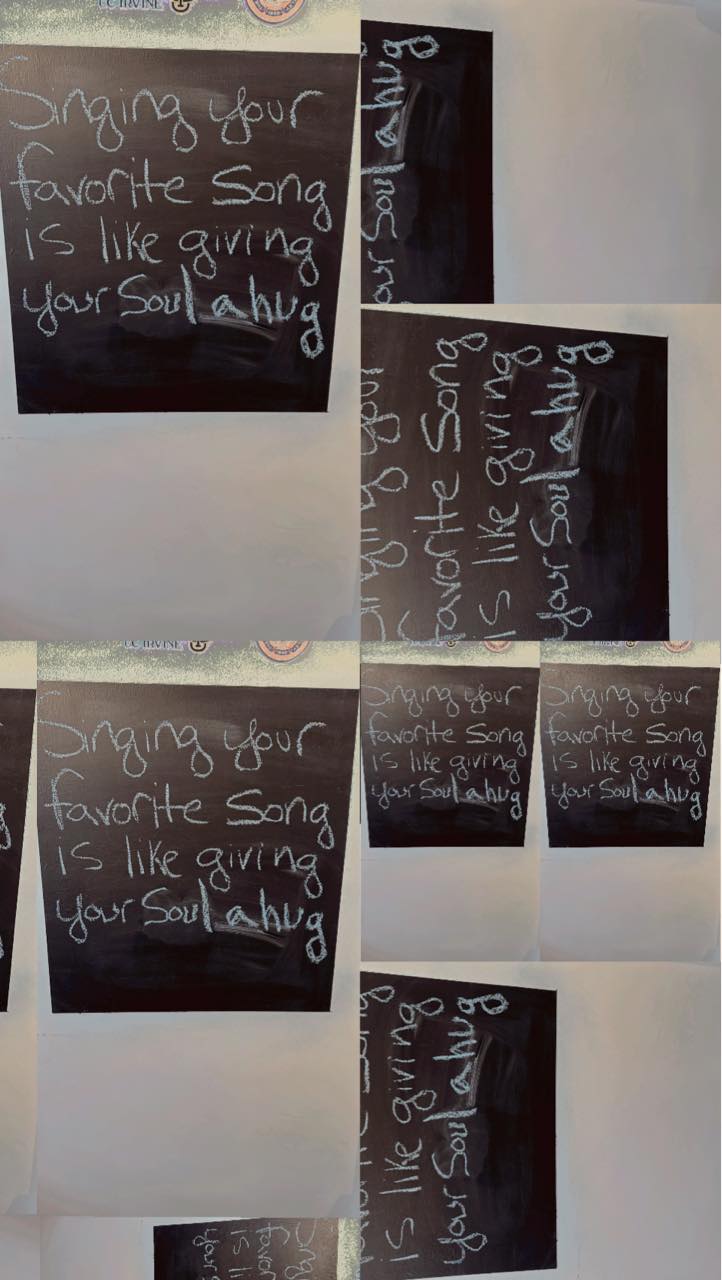 UC IRVINE
Singing your
favorite Song
is like giving
your Soul a hug
our Soul a hug
favorite Song
is like giving
your Soul a hug
UC IRVINE
Singing your
favorite Song
is like giving
your Soul a hug
Singing your
favorite Song
is like giving
your Soul a hug
Singing your
favorite Song
is like giving
your Soul a hug
is like giving
your Soul a hug